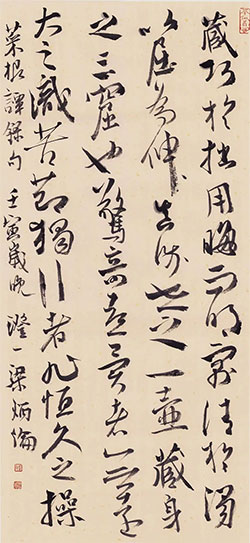 藏巧於拙用晦而明寓清於濁
以屈為伸真涉世之一壺藏身
之三窟也驚奇喜異者無遠
大之識苦節獨行者非恆久之操
菜根譚錄句 壬寅歲晚 澄一梁炳倫